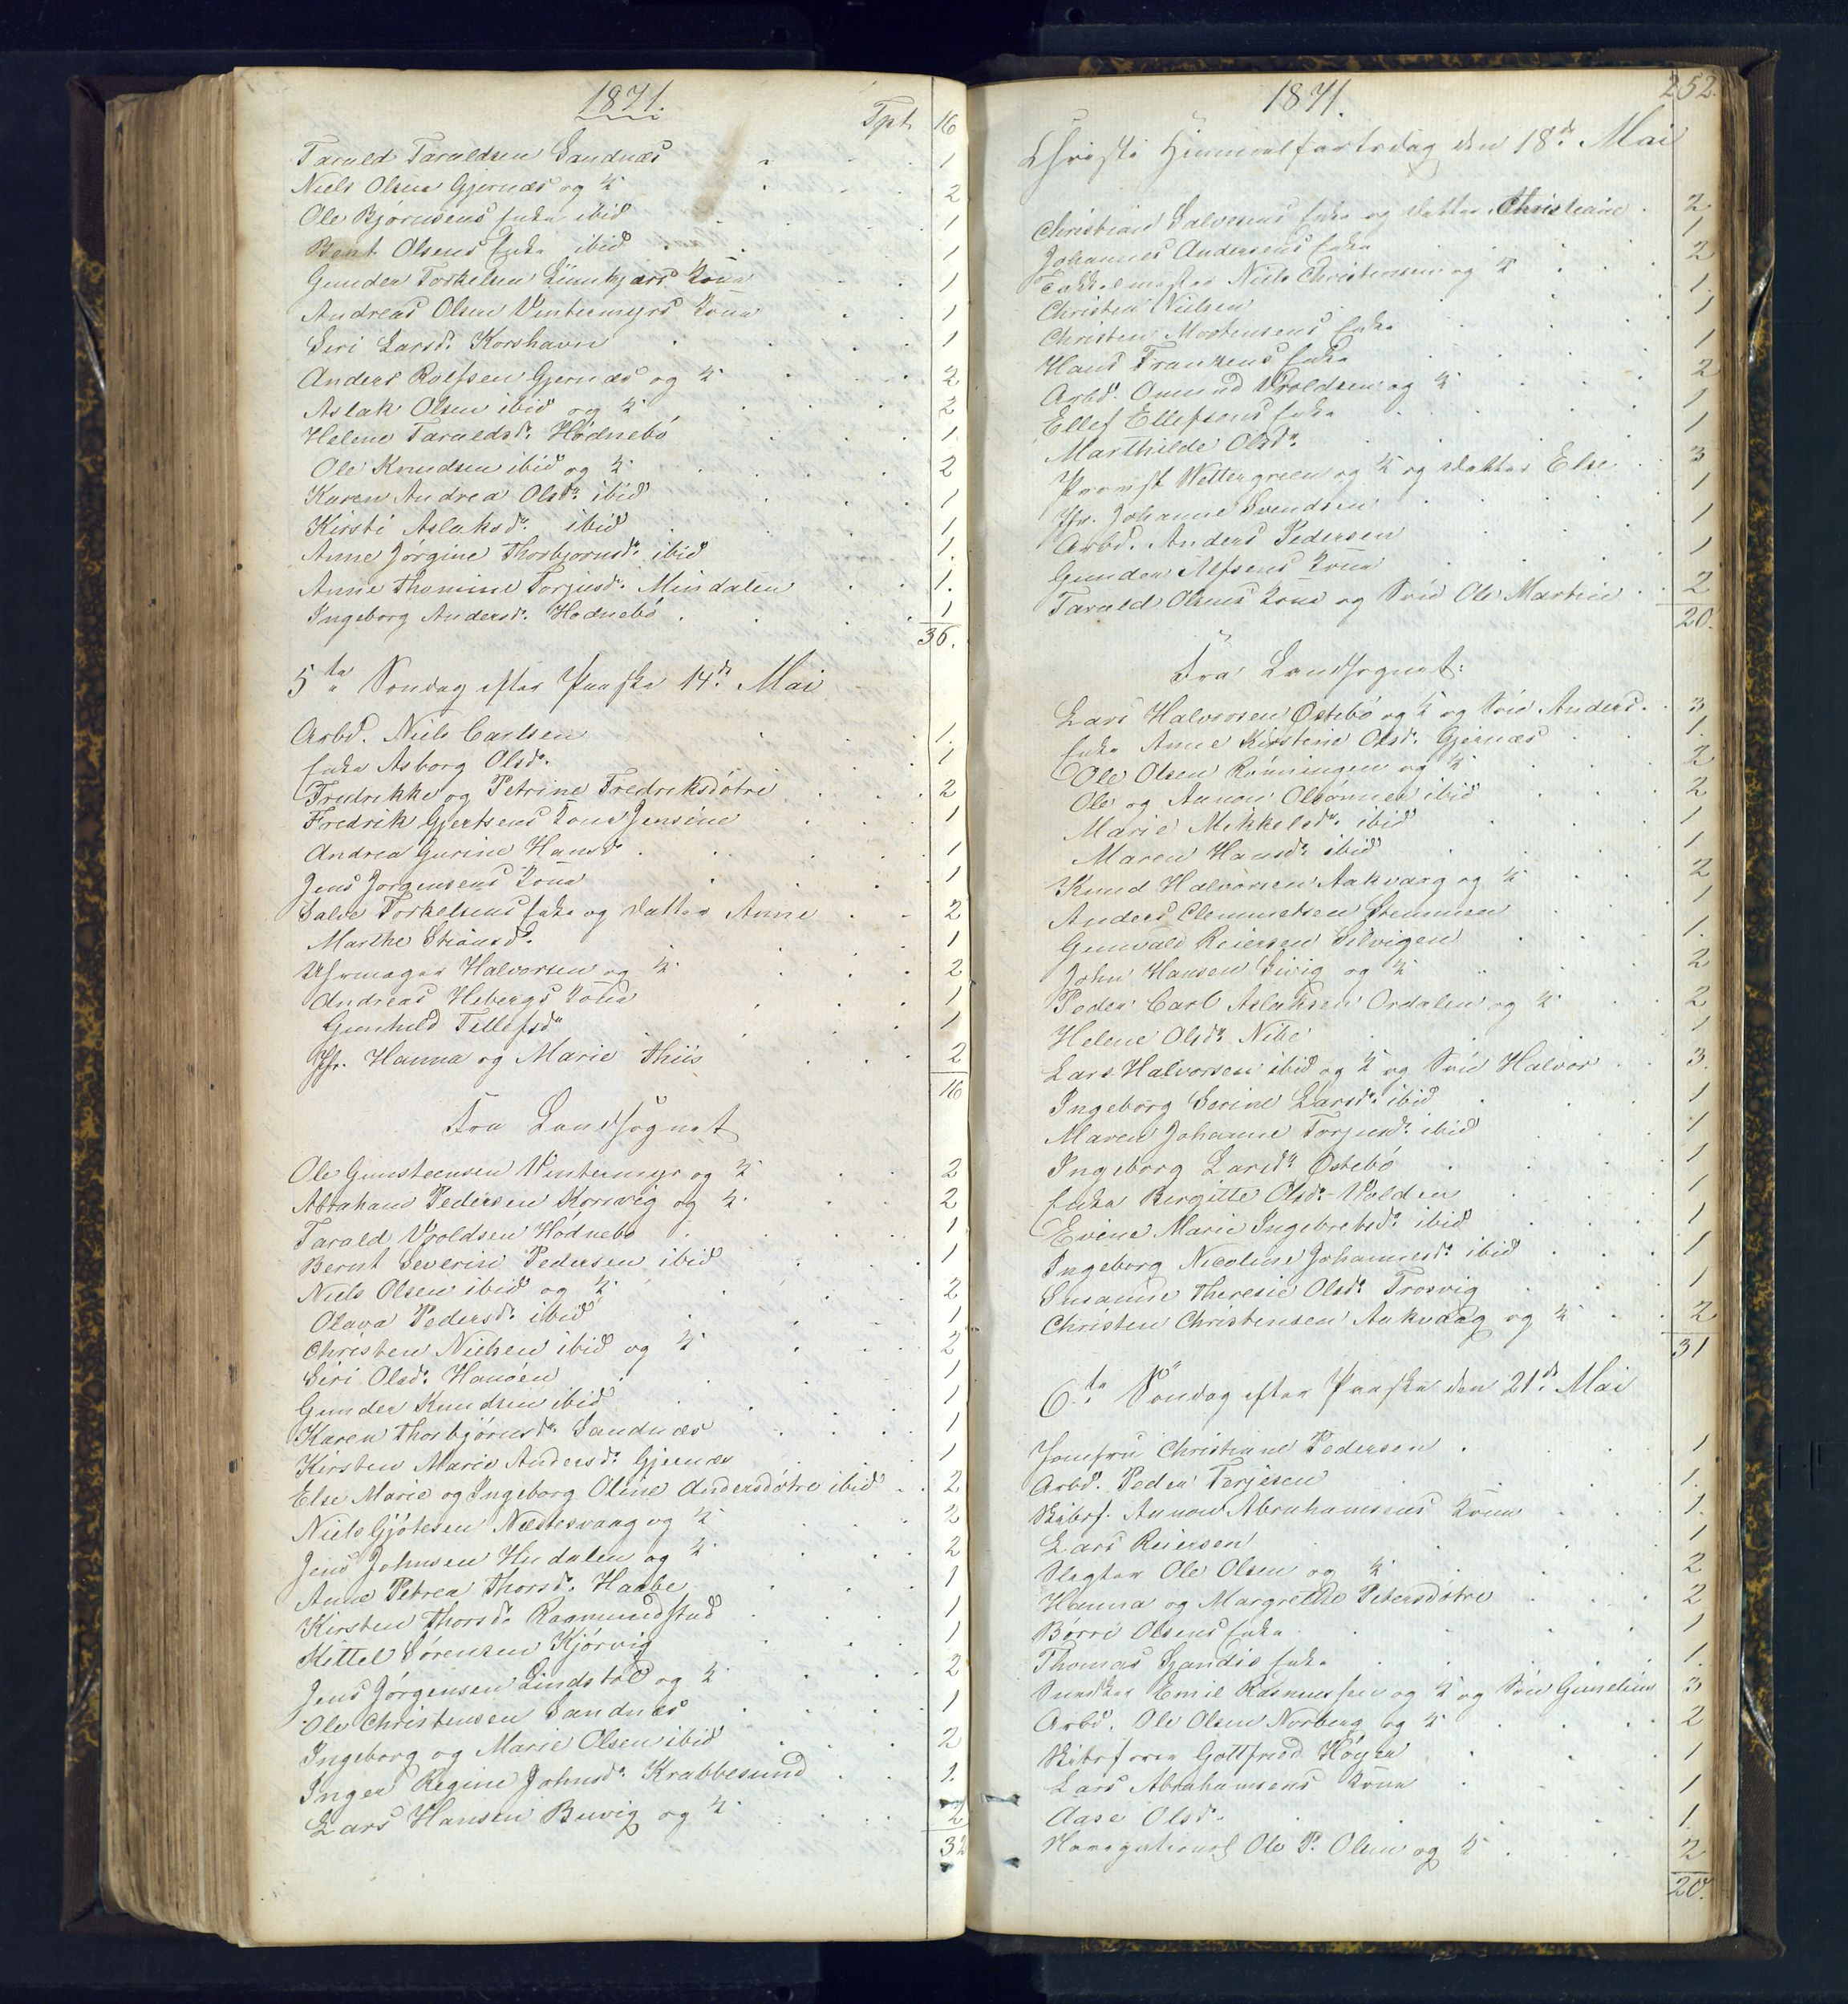 1871.
Tpt. 16
Tarald Taraldsen Sandnæs 1
Niels Olsen Gjernæs og K 2
Ole Bjørnsens Enke ibid 1
Bent Olsens Enke ibid 1
Gunder Torkelsen Kona 1
Andreas Olsen Vintermyrs Kona 1
Siri Larsd. Korshavn 1
Anders Rolfsen Gjernæs og K 2
Aslak Olsen ibid og K 2
Helene Taraldsd. Hódnebó 1
Ole Knudsen ibid og K. 2
Karen Andrea Olsdr. ibid 1
Kirsti Aslaksd. ibid 1
Anne Jórgine Thorbjornsd. ibid 1.
Anne Thomine Torjusd. Mindalen 1.
Ingeborg Andersd. Hodnebó 1
36.
5te Søndag efter Paaske 14d. Mai
Arbd. Niels Carlsen 1.
Enke Asborg Olsdr. 1
Fredrikke og Petrine Fredriksdótre 2
Fredrik Gjertsens Kona Jensine 1
Andrea Gurine Hansd. 1
Jens Jorgensens Kona 1
Salve Torkelsens Enke og Datter Anne 2
Marthe Stiansd. 1
Uhrmager Halvorsen og K. 2
Andreas Hebergs Kona 1
Gunhild Tellefsdr 1
Jfr. Hanna og Marie Thiis 2
16
Fra Landsognet
Ole Gunsteensen Vintermyr og K 2
Abraham Pedersen Korsvig og K. 2
Tarald Vroldsen Hódnebó 1
Bernt Severin Pedersen ibid 1
Niels Olsen ibid og K. 2
Olava Pedersd. ibid 1
Christen Nielsen ibid og K. 2
Siri Olsd. Hanóen 1
Gunder Knudsen ibid 1
Karen Thorbjórnsdr. Sandnæs 1
Kirsten Marie Andersd. Gjernæs 1
Else Marie og Ingeborg Oline Andersdótre ibid 2
Niels Gjótesen Næstesvaag og K. 2
Jens Johnsen Hudalen og K. 2
Anne Petrea Thorsd. Haabe 1
Kirsten Thorsd. Ragmundstad 1
Kittel Sórensen Kjórvig 1
Jens Jórgensen Lindstól og K. 2
Ole Christensen Sandnæs 1
Ingeborg og Marie Olsen ibid 2
Inger Regine Johnsd. Krabbesund 1.
Lars Hansen Buvig og K. 2
32
1871.
252.
Christi Himmelfartsdag den 18d. Mai
Christian Salvesens Enke og Datter Christiane 2
Johannes Andersens Enke 1
Niels Christensen og K 2
Christen Nielsen 1.
Christen Mortensens Enke 1
Hans Franzens Enke 1
Arbd. Omund Vroldsen og K 2
Ellef Ellefsens Enke 1
Marthilde Olsdr. 1
Provst Wettergreen og K og Datter Else 3
Jfr. Johanne Svendsen 1
Arbd. Anders Pedersen 1
Gunder Alfsens Kona 1
Tarald Olsens Kona og Són Ole Martin 2
20.
Fra Landsognet:
Lars Halvorsen Óstebó og K og Són Anders 3
Enke Anne Kirstine Olsd. Gjernæs 1.
Ole Olsen Rónningen og K 2
Ole og Aanon Olsónner ibid 2
Marie Mikkelsdr. ibid 1
Maren Hansd. ibid 1
Knud Halvorsen Aakvaag og K 2
Anders Clemmetsen Stemmen 1
Gunvald Reiersen Silvigen 1.
John Hansen Sivig og K 2
Peder Carl Aslaksen Ordalen og K 2
Helene Olsdr. Nibe 1
Lars Halvorsen ibid og K og Són Halvor 3.
Ingeborg Serine Larsd. ibid 1
Maren Johanne Torjusd. ibid 1
Ingeborg Larsdr. Óstebó 1
Enke Birgitte Olsd. Volden 1
Evine Marie Ingebretsd. ibid 1
Ingeborg Nicoline Johannesd. ibid 1
Susanne Theresie Olsd. Trosvig 1
Christen Christensen Aakvaag og K. 2
31
6te Søndag efter Paaske den 21d. Mai
Jomfru Christiane Pedersen 1
Arbd. Peder Terjesen 1.
Skibsf. Aanon Abrahamsens Kona 1.
Lars Reiersen 1
Slagter Ole Olsen og K. 2
Hanna og Margrethe Petersdótre 2
Bórre Olsens Enke 1
Thomas Enke 1.
Snedker Emil Rasmussen og K og Són 3
Arbd. Ole Olsen Norberg og K. 2
Skibsfórer Gottfried Hóyer 1
Lars Abrahamsens Kona 1
Aase Olsd. 1.
Ole P. Olsen og K 2
20.